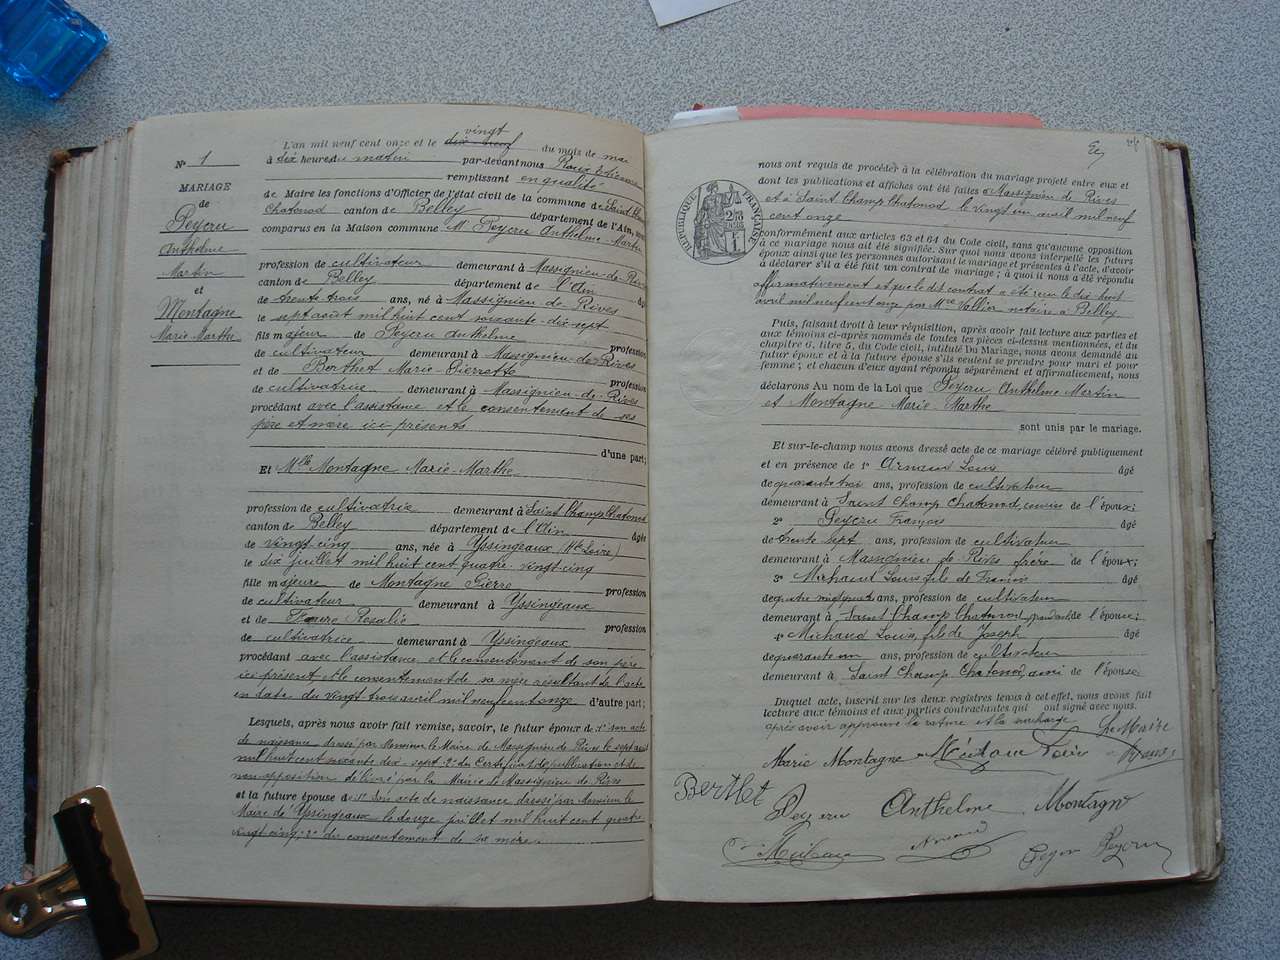 N° 1
MARIAGE
de
Peycru
Anthelme
Martin
et
Montagne
Marie-Marthe
L'an mil neuf cent onze et le dix neuf vingt du mois de mai
à dix heures du matin par-devant nous Roux
remplissant en qualité
de Maire les fonctions d'Officier de l'état civil de la commune de Saint Champ
Chatonod canton de Belley département de l'Ain,
comparus en la Maison commune Mr Peycru Anthelme-Martin
profession de cultivateur demeurant à Massignieu-de-Rives
canton de Belley département de l'Ain âgé
de trente trois ans, né à Massignieu-de-Rives
le sept août mil huit cent soixante-dix-sept
fils majeur de Peycru Anthelme profession
de cultivateur demeurant à Massignieu-de-Rives
et de Berthet Marie-Pierrette profession
de cultivatrice demeurant à Massignieu-de-Rives
procédant avec l'assistance et le consentement de ses
père et mère ici présents
d'une part;
Et Mlle Montagne Marie-Marthe
profession de cultivatrice demeurant à Saint Champ Chatonod
canton de Belley département de l'Ain âgée
de vingt cinq ans, née à Yssingeaux (Hte Loire)
le dix juillet mil huit cent quatre-vingt-cinq
fille majeure de Montagne Pierre profession
de cultivateur demeurant à Yssingeaux
et de Faure Rosalie profession
de cultivatrice demeurant à Yssingeaux
procédant avec l'assistance et le consentement de son père
ici présent et le consentement de sa mère résultant de l'acte
en date du vingt trois avril mil neuf cent onze d'autre part;
Lesquels, après nous avoir fait remise, savoir, le futur époux de 1° son acte
de naissance dressé par Monsieur le Maire de Massignieu de Rives le sept août
mil huit cent soixante dix-sept 2° du Certificat de publication et de
non opposition délivré par la Mairie de Massignieu de Rives
et la future épouse de 1° Son acte de naissance dressé par Monsieur le
Maire de Yssingeaux le douze juillet mil huit cent quatre
vingt cinq; 2° du consentement de sa mère
RÉPUBLIQUE FRANÇAISE
nous ont requis de procéder à la célébration du mariage projeté entre eux et
dont les publications et affiches ont été faites à Massignieu de Rives
et à Saint Champ Chatonod le vingt un avril mil neuf
cent onze
conformément aux articles 63 et 64 du Code civil, sans qu'aucune opposition
à ce mariage nous ait été signifiée. Sur quoi nous avons interpellé les futurs
époux ainsi que les personnes autorisant le mariage et présentes à l'acte, d'avoir
à déclarer s'il a été fait un contrat de mariage; à quoi il nous a été répondu
affirmativement et que le dit contrat a été reçu le dix huit
avril mil neuf cent onze par Me Vallier notaire à Belley
Puis, faisant droit à leur réquisition, après avoir fait lecture aux parties et
aux témoins ci-après nommés de toutes les pièces ci-dessus mentionnées, et du
chapitre 6, titre 5, du Code civil, intitulé Du Mariage, nous avons demandé au
futur époux et à la future épouse s'ils veulent se prendre pour mari et pour
femme; et chacun d'eux ayant répondu séparément et affirmativement, nous
déclarons Au nom de la Loi que Peycru Anthelme Martin
et Montagne Marie-Marthe
sont unis par le mariage.
Et sur-le-champ nous avons dressé acte de ce mariage célébré publiquement
et en présence de 1° Arnaud Louis âgé
de quarante trois ans, profession de cultivateur
demeurant à Saint Champ Chatonod, cousin de l'époux;
2° Peycru François âgé
de trente sept ans, profession de cultivateur
demeurant à Massignieu de Rives frère de l'époux;
3° Michaud Louis fils de Francis âgé
de ans, profession de cultivateur
demeurant à Saint Champ Chatonod, de l'épouse;
4° Michaud Louis, fils de Joseph âgé
de quarante un ans, profession de cultivateur
demeurant à Saint Champ Chatonod, ami de l'épouse.
Duquel acte, inscrit sur les deux registres tenus à cet effet, nous avons fait
lecture aux témoins et aux parties contractantes qui ont signé avec nous.
après avoir approuvé la rature et la surcharge Le Maire
Marie Montagne Michaud Louis Roux
Berthet
Peycru Anthelme Montagne
Michaud Arnaud Peycru